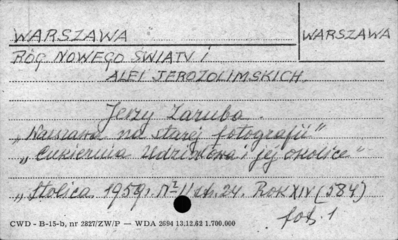 WARSZAWA
WARSZAWA
RÓG NOWEGO ŚWIATU i
ALEI JEROZOLIMSKICH.
Jerzy Zaruba.
„Warszawa na starej fotografii"
„Cukiernia Udziałowa i jej okolice"
„Stolica 1959r. Nr 11 str. 24. Rok XIV (584)
fot. 1
CWD - B-15-b, nr 2827/ZW/P — WDA 2694 13.12.62 1.700.000